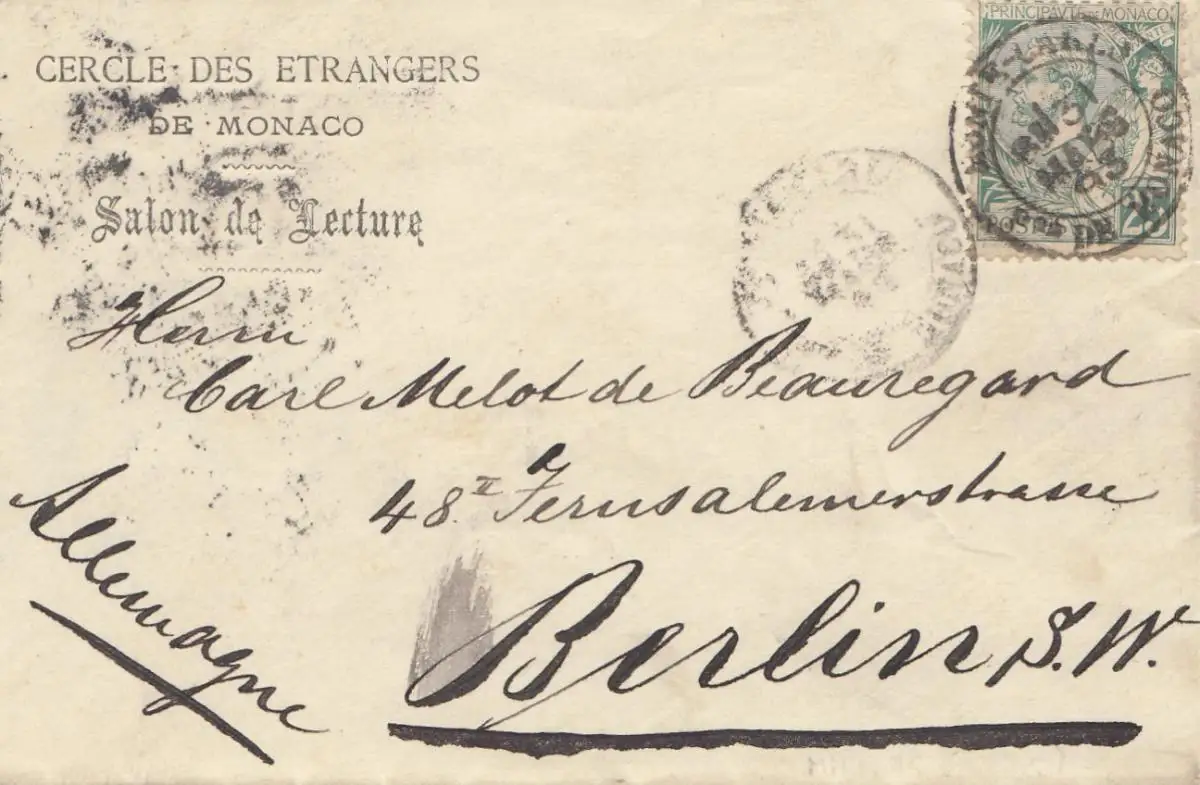 CERCLE DES ETRANGERS
DE MONACO
Salon de Lecture
PRINCIPAUTÉ DE MONACO
POSTES
25
MONTE CARLO
PTE DE MONACO
Herrn
Carl Melot de Beauregard
48 II Jerusalemerstrasse
Berlin S.W.
Allemagne